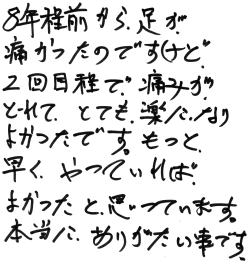 8年程前から、足が
痛かったのですけど
2回目程で、痛みが
とれて、とても、楽に、なり
よかったです。もっと、
早く、やっていれば、
よかったと、思っています。
本当に、ありがたい事です。